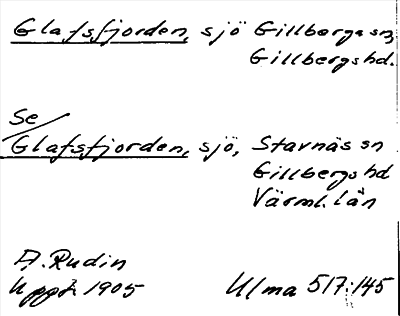 Glafsfjorden, sjö Gillberga sn,
Gillbergs hd.
Se
Glafsfjorden, sjö, Stavnäs sn
Gillbergs hd
Värml. län
A. Rudin
Uppt. 1905 Ulma 517:145